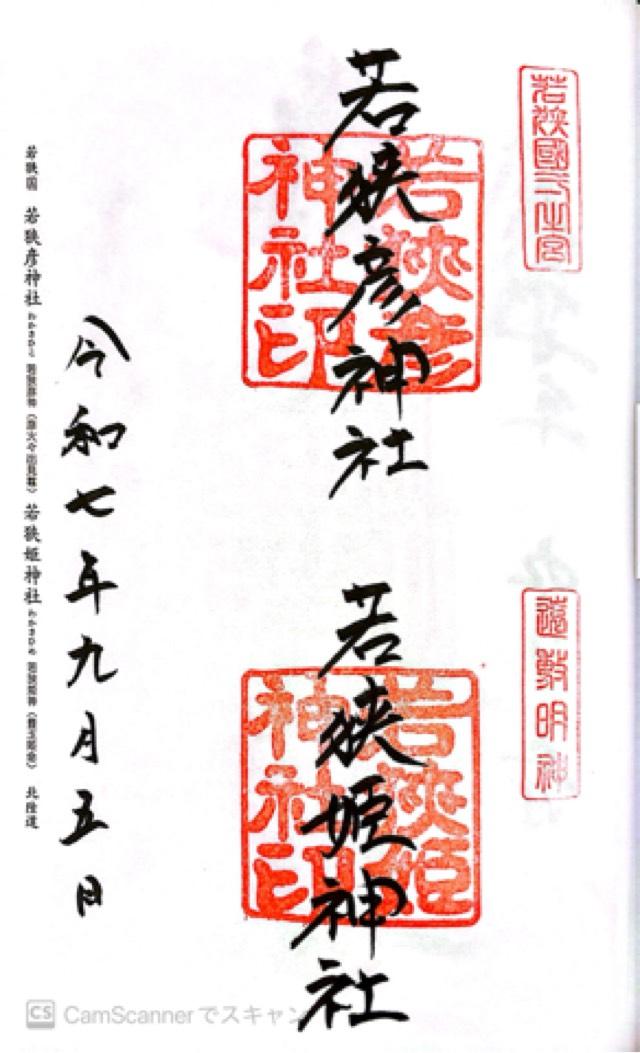 若狹國一之宮
遠敷明神
若狭彦神社
若狹彦神社印
若狭姫神社
若狹姫神社印
令和七年九月五日
若狭国 若狭彦神社 わかさひこ 若狭彦神（彦火々出見尊） 若狭姫神社 わかさひめ 若狭姫神（豊玉姫命） 北陸道
CS CamScannerでスキャン